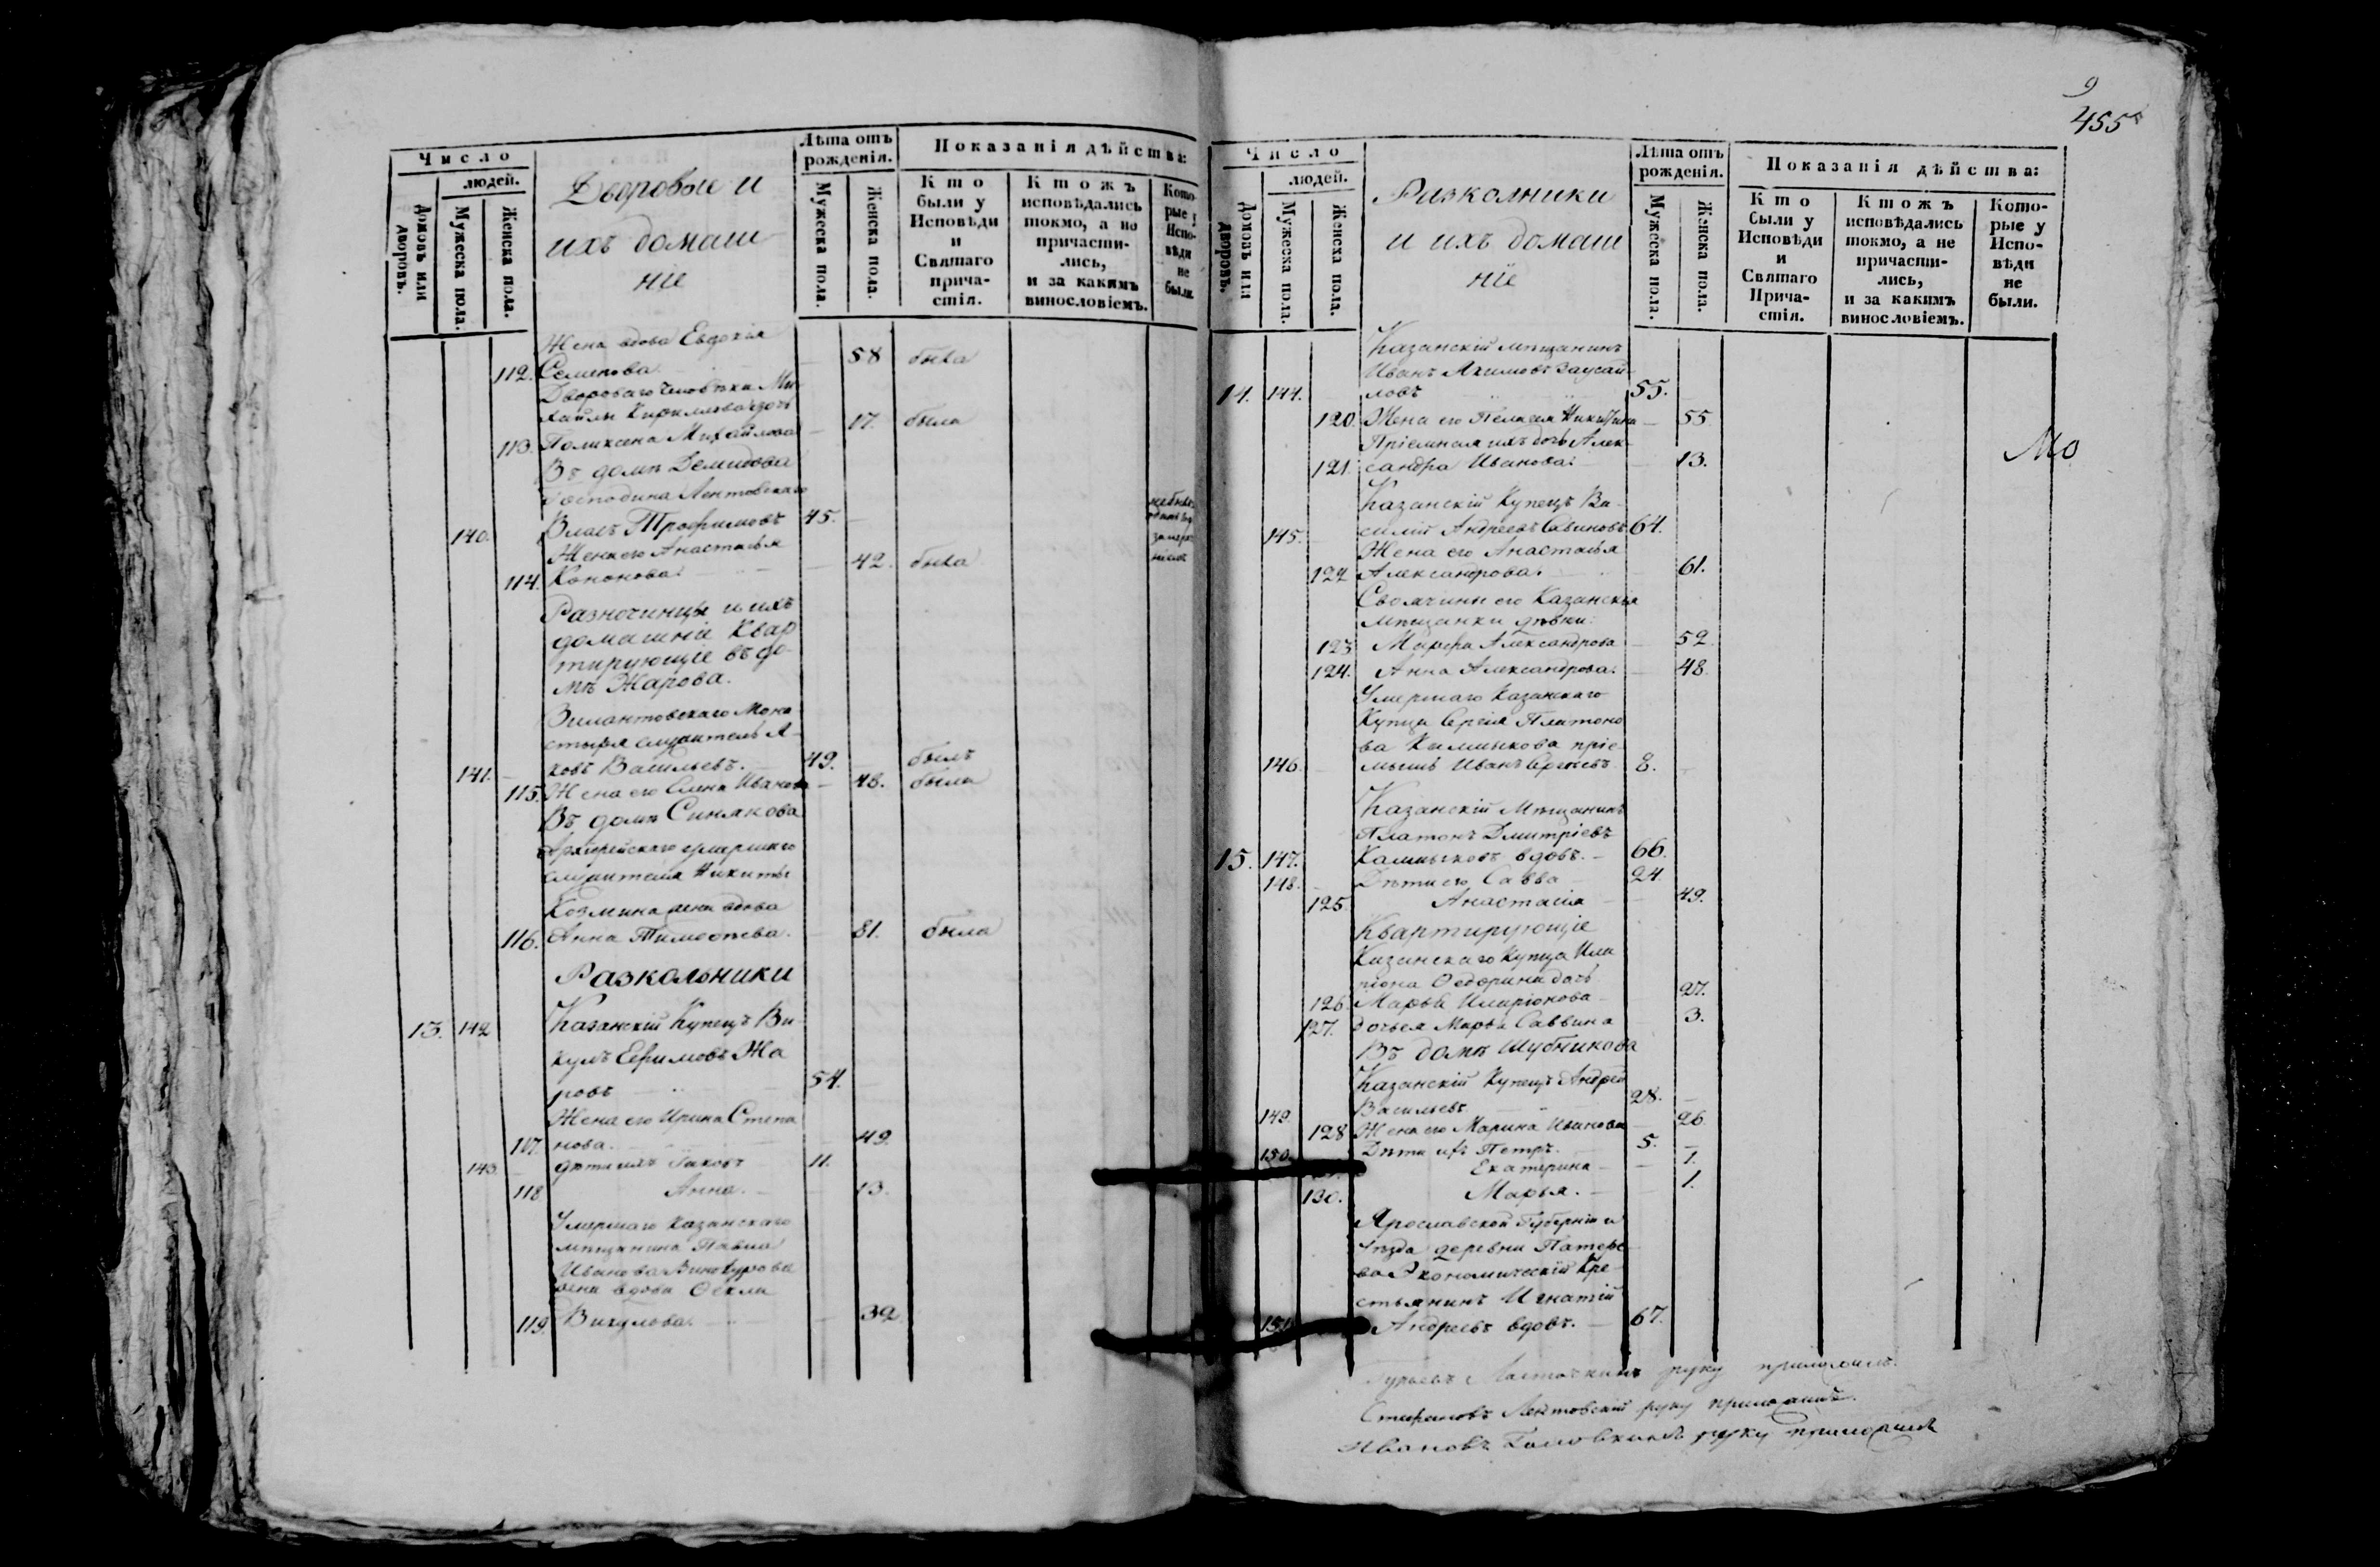 Число
людей.
Домовъ или дворовъ.
Мужеска пола.
Женска пола.
Дворовые и
ихъ домаш
ніе
Лѣта отъ
рожденія.
Мужеска пола.
Женска пола.
Показанія дѣйства:
Кто
были у
Исповѣди
и
Святаго
прича-
стія.
Ктожъ
исповѣдались
токмо, а не
причасти-
лись,
и за какимъ
винословіемъ.
Кото-
рые у
Испо-
вѣди
не
были.
Жена вдова Евдокія
112. Семенова. 58 была
Двороваго человѣка Ми
хайлы Кирилова дочь
113. Поликсена Михайлова 17. была
Въ домѣ Демидова
Господина Лентовскаго
140. Власъ Трофимовъ 45.
Жена его Анастасья
114. Кононова. 42. была
Разночинцы и ихъ
домашніе Квар
тирующіе въ до-
мѣ Жарова.
Зилантовскаго Мона
стыря служитель Я-
141. ковъ Васильевъ. 49. былъ
115. Жена его Елена Иванова 48. была
Въ домѣ Синякова
Архіерейскаго умершаго
служителя Никиты
Козмина жена вдова
116. Анна Тимофѣева. 81. была
Разкольники
13. 142 Казанскій Купецъ Ви-
кулъ Ефимовъ Жа
ровъ 54.
Жена его Ирина Степа
117. нова. 49.
143. дѣти ихъ Іаковъ 11.
118 Анна. 13.
Умершаго Казанскаго
мѣщанина Павла
Иванова Винокурова
жена вдова Ѳекла
119. Викулова. 39
9
455
Число
людей.
Домовъ или дворовъ.
Мужеска пола.
Женска пола.
Разколники
и ихъ домаш
ніе
Лѣта отъ
рожденія.
Мужеска пола.
Женска пола.
Показанія дѣйства:
Кто
были у
Исповѣди
и
Святаго
Прича-
стія.
Ктожъ
исповѣдались
токмо, а не
причасти-
лись,
и за какимъ
винословіемъ.
Кото-
рые у
Испо-
вѣди
не
были.
Казанскій мѣщанинъ
Иванъ Акимовъ Заусай
14. 144. ловъ 55.
120. Жена его Пелагея Никитина 55.
Пріемная ихъ дочь Алек-
121. сандра Иванова. 13.
Казанскій Купецъ Ва-
145. силій Андреевъ Савиновъ 64.
Жена его Анастасья
122 Александрова. 61.
Своячины его Казанскія
мѣщанки дѣвки.
123 Марфа Александрова 52
124. Анна Александрова. 48.
Умершаго Казанскаго
Купца Сергѣя Платоно
ва Калмыкова пріе-
146. мышъ Иванъ Сергѣевъ 8.
Казанскій Мѣщанинъ
Платонъ Дмитріевъ
15. 147. Калмыковъ вдовъ. 66.
148. Дѣти его Савва 24.
125. Анастасія 49.
Квартирующіе
Казанскаго Купца Ила
ріона Ѳедорина дочь
126. Марья Иларіонова 27.
127. дочь ея Марья Саввина 3.
Въ домѣ Шубникова
Казанскій Купецъ Андрей
149. Васильевъ 28.
128 Жена его Марина Иванова 26.
150. Дѣти ихъ Петръ. 5.
Екатерина 1.
130. Марья. 1.
Ярославской Губерніи и
Уѣзда деревни
Экономическій Кре
стьянинъ Игнатій
151 Андреевъ вдовъ. 67.
Мо
Гурьевъ Ласточкинъ руку приложилъ.
Стефановъ Лентовскій руку приложилъ.
Ивановъ руку приложилъ